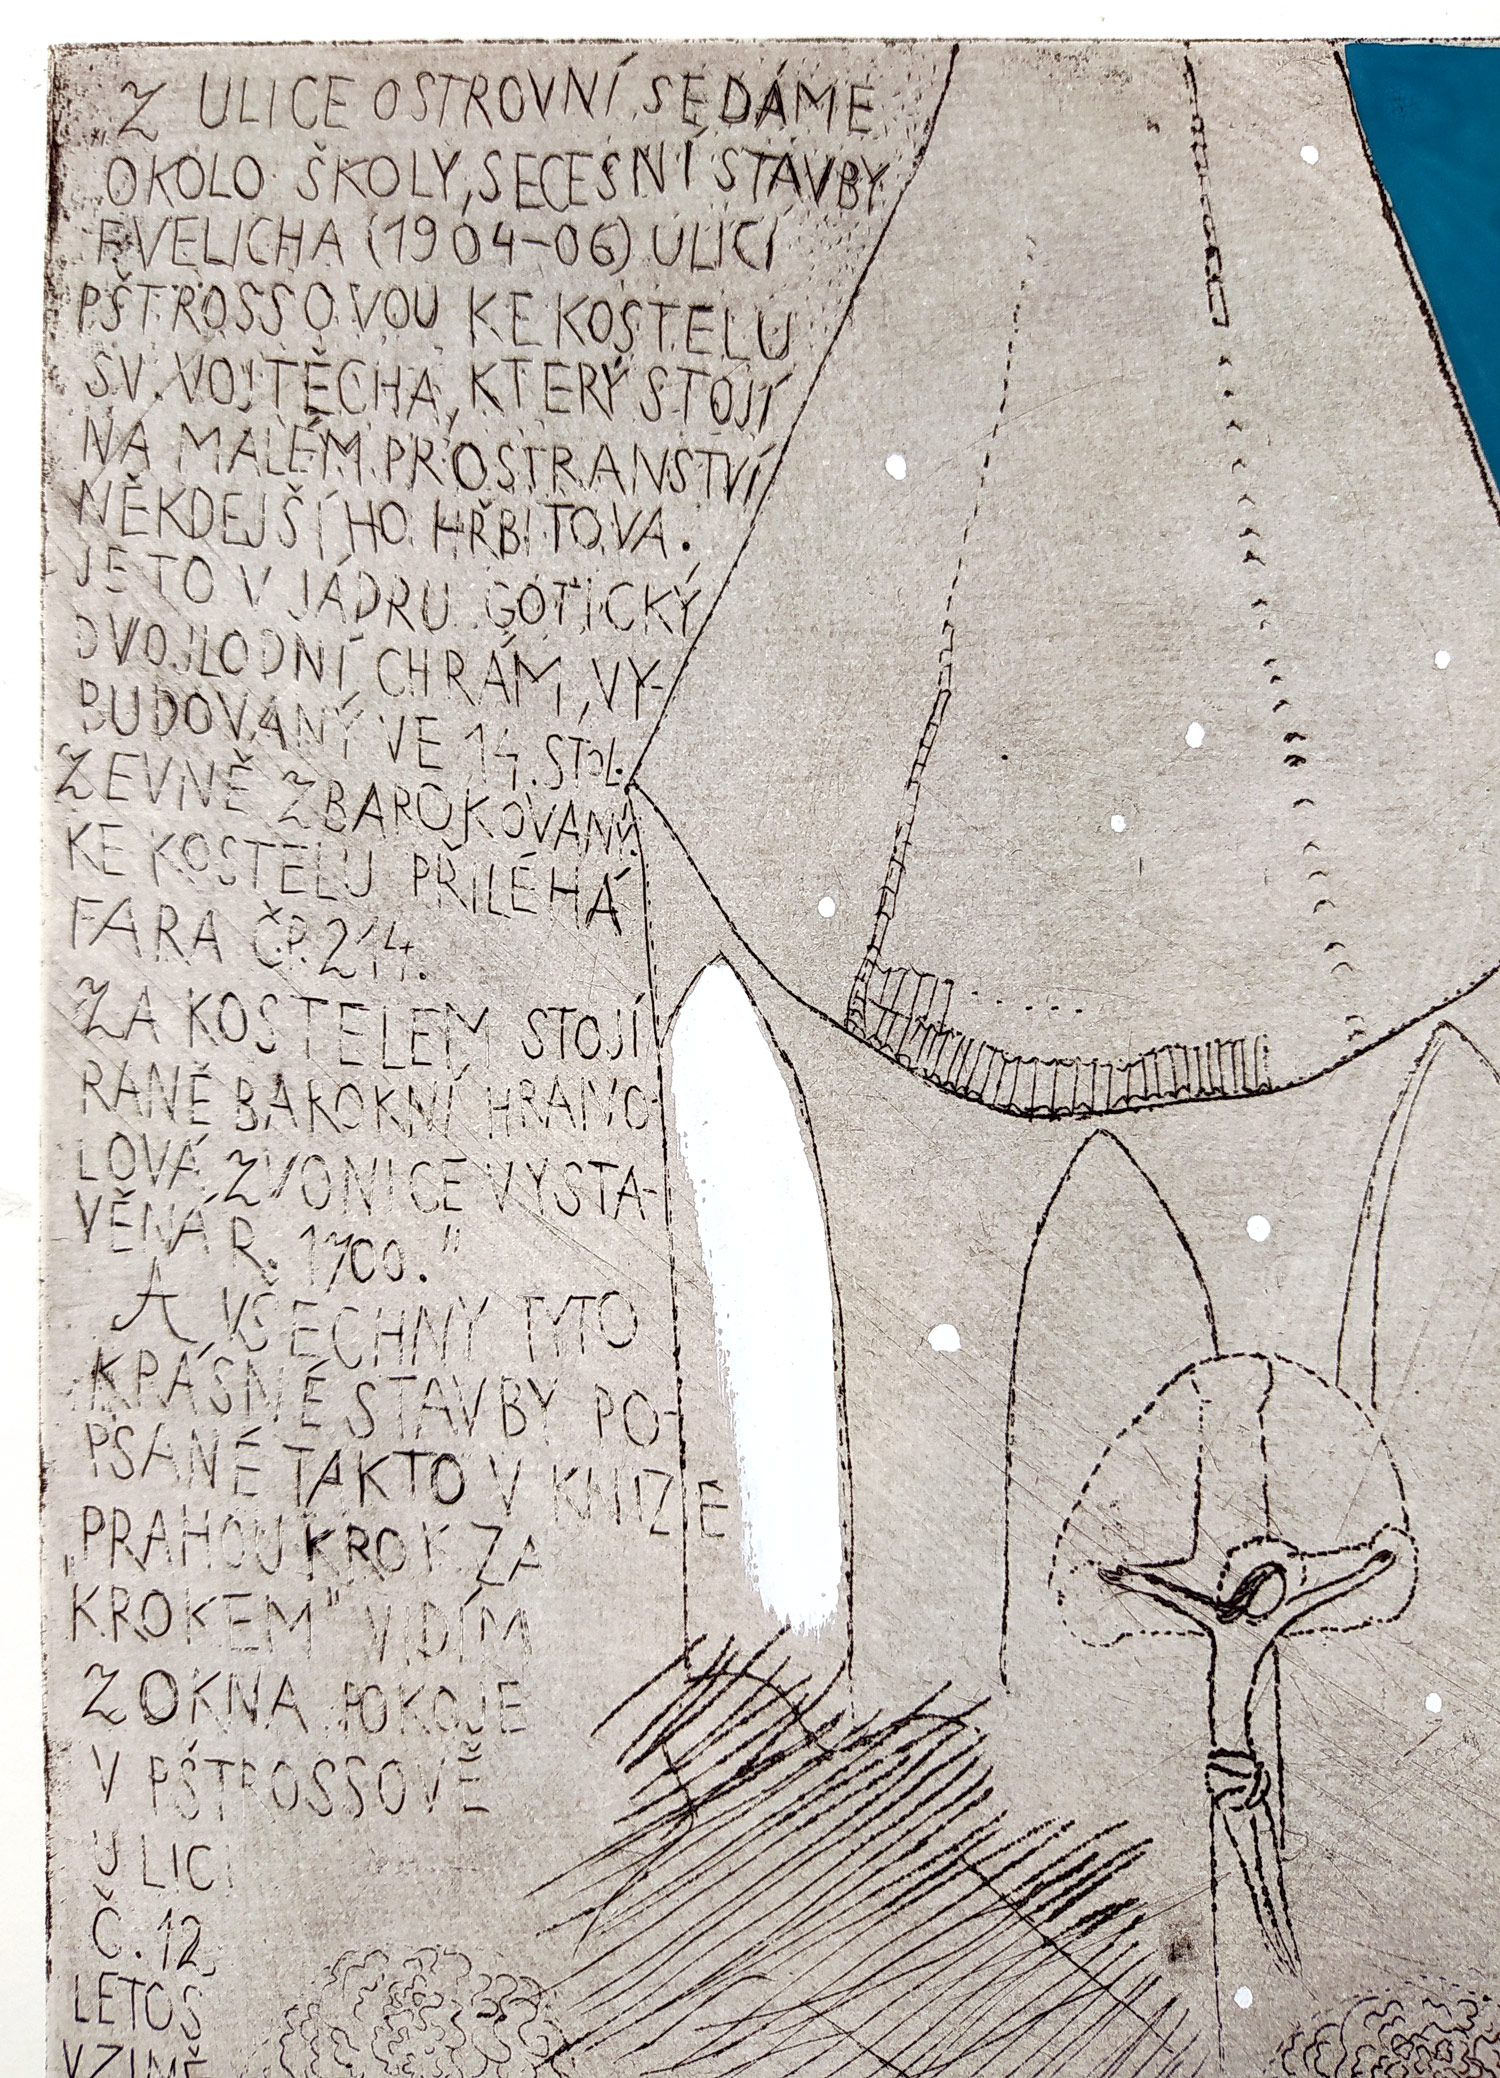 „Z ULICE OSTROVNÍ SE DÁME
OKOLO ŠKOLY, SECESNÍ STAVBY
F. VELICHA (1904–06) ULICÍ
PŠTROSSOVOU KE KOSTELU
SV. VOJTĚCHA, KTERÝ STOJÍ
NA MALÉM PROSTRANSTVÍ
NĚKDEJŠÍHO HŘBITOVA.
JE TO V JÁDRU GOTICKÝ
DVOJLODNÍ CHRÁM, VY-
BUDOVANÝ VE 14. STOL.
ZEVNĚ ZBAROKOVANÝ.
KE KOSTELU PŘILÉHÁ
FARA ČP. 214.
ZA KOSTELEM STOJÍ
RANĚ BAROKNÍ HRANO-
LOVÁ ZVONICE VYSTA-
VĚNÁ R. 1700."
A VŠECHNY TYTO
KRÁSNÉ STAVBY PO-
PSANÉ TAKTO V KNIZE
„PRAHOU KROK ZA
KROKEM" VIDÍM
Z OKNA POKOJE
V PŠTROSSOVĚ
ULICI
Č. 12
LETOS
V ZIMĚ